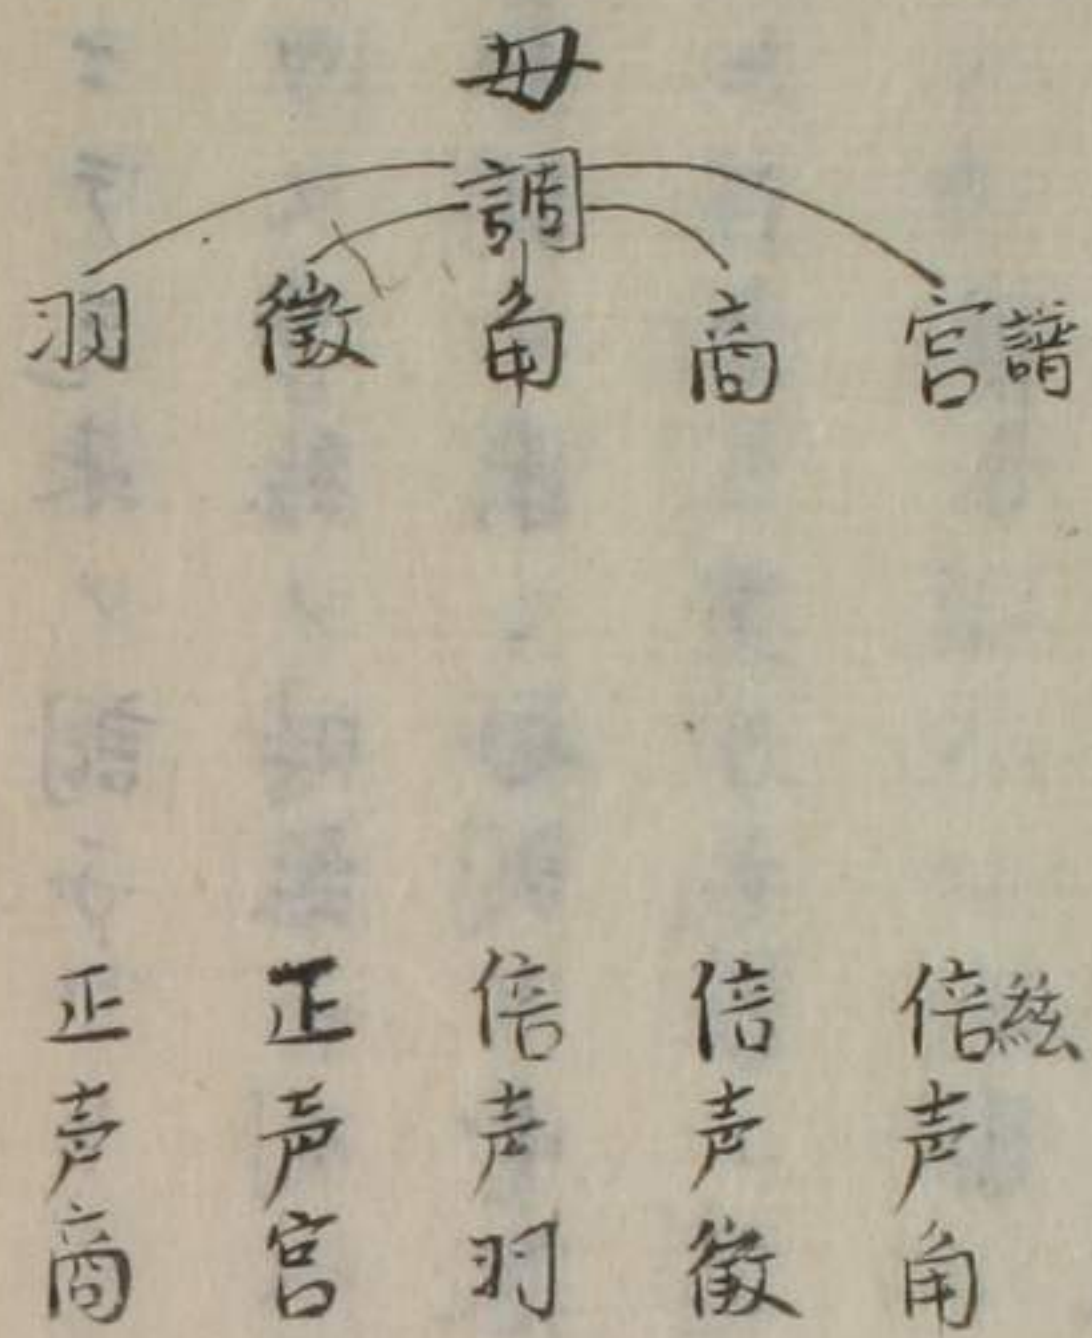 毋
調
譜
宮
商
角
徵
羽
絃
倍声角
倍声徵
倍声羽
正声宮
正声商